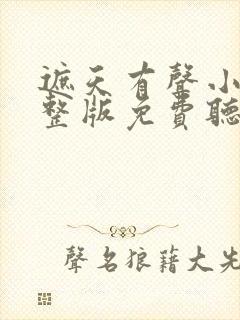 遮天有聲小
整版免費聽
聲名狼藉大先